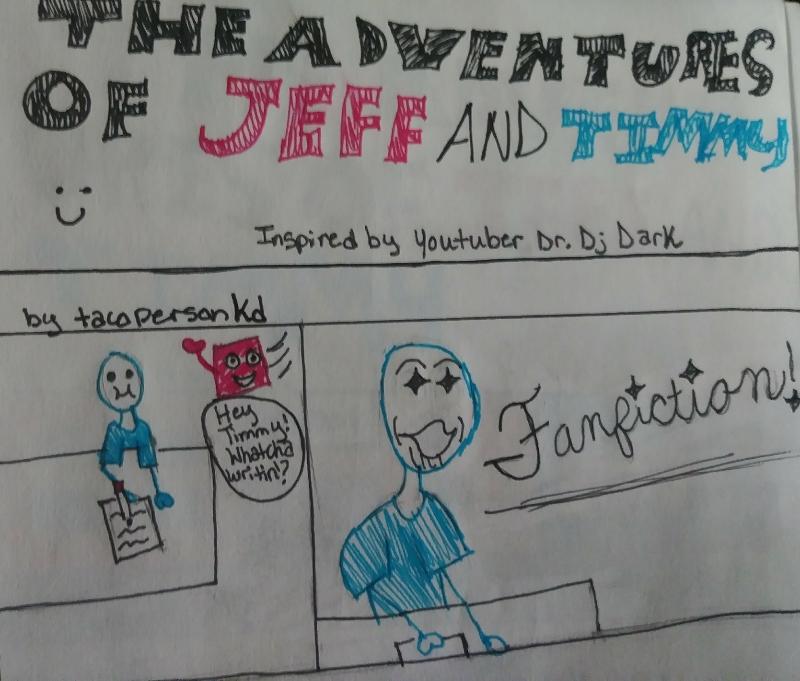 THE ADVENTURES
OF JEFF AND TIMMY
Inspired by Youtuber Dr. Dj Dark
by tacopersonKd
Hey
Timmy!
Whatcha
writin'?
Fanfiction!